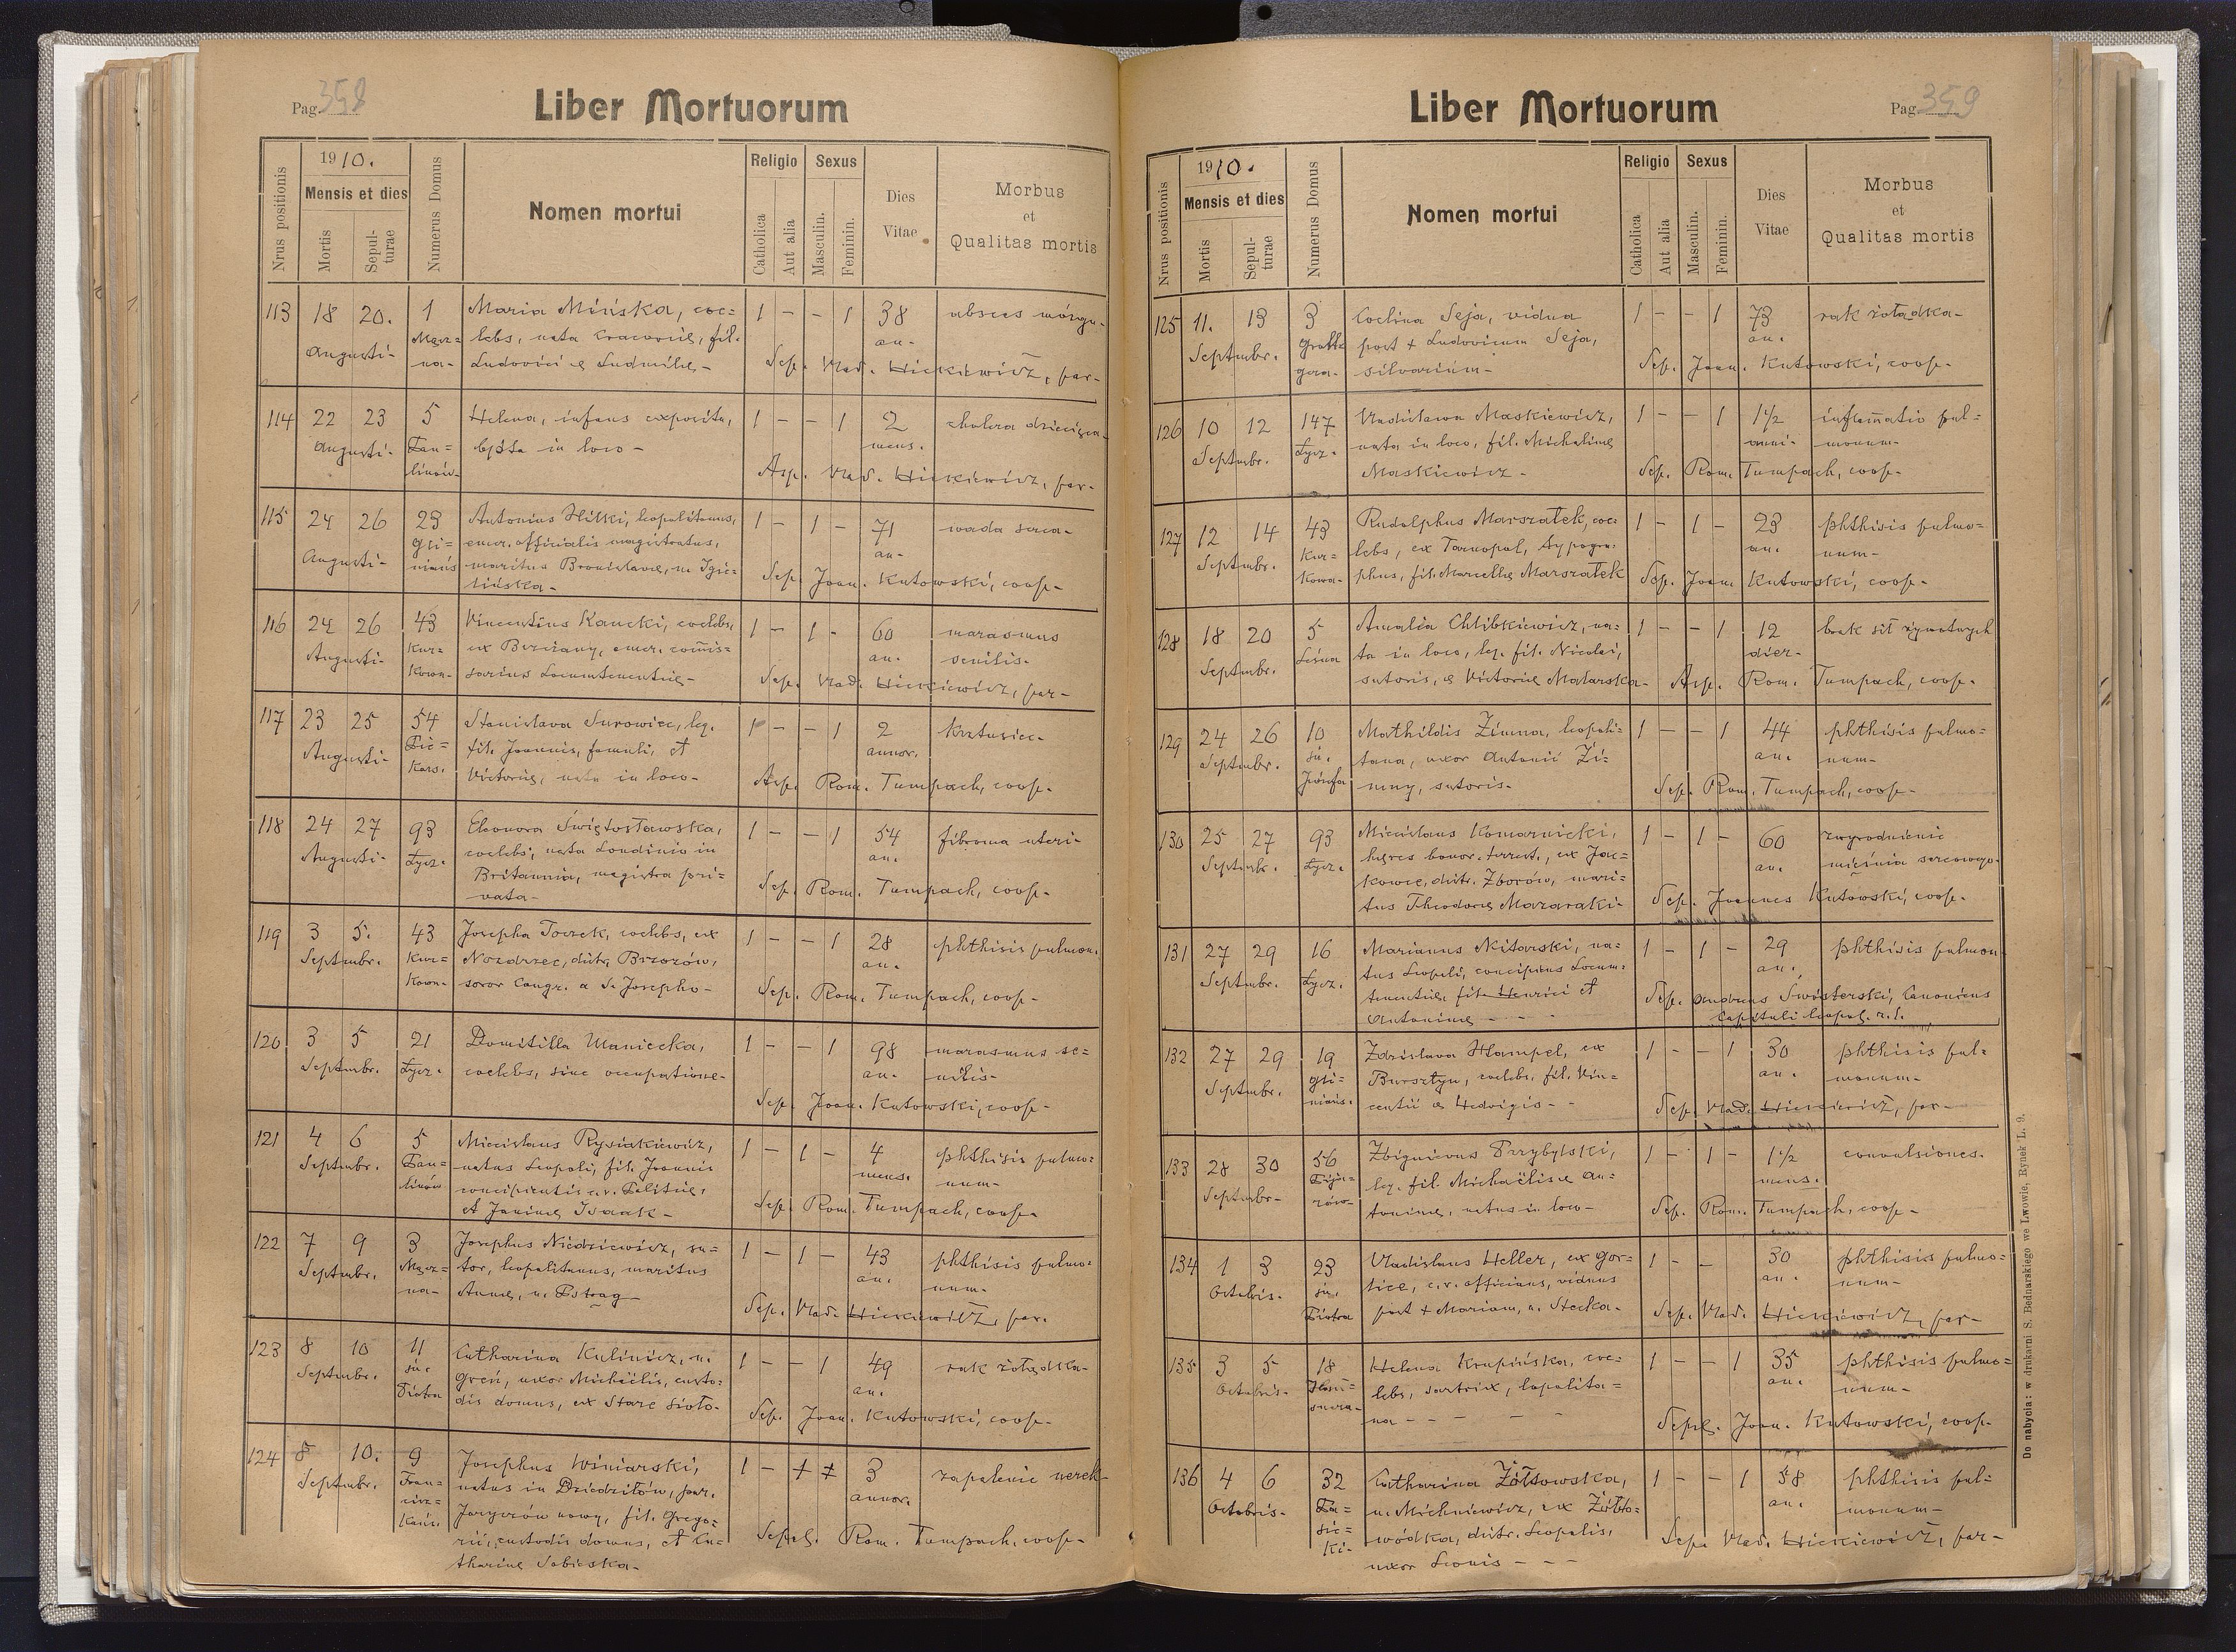 Pag. 358
Liber Mortuorum
Nrus positionis
1910.
Mensis et dies
Mortis
Sepul-
turae
Numerus Domus
Nomen mortui
Religio
Catholica
Aut alia
Sexus
Masculin.
Feminin.
Dies
Vitae
Morbus
et
Qualitas mortis
113 18 20. 1 Maria Mińska, coe= 1 - - 1 38 absces mózgu-
Augusti- lebs, nata Cracovię, fil. an.
na- Ludovici & Ludmilę- Sep. Vlad. Hickiewicz, par-
114 22 23 5 Helena, infans exposita, 1 - - 1 2 cholera dziecięca-
Augusti- Pau= bpta in loco - mens.
linów- Asp. Vlad. Hickiewicz, par-
115 24 26 29 Antonius Hilski, leopolitanus, 1 - 1 - 71 wada serca-
gli= emer. officialis magistratus, an-
Augusti- niańs maritus Bronislavę, n. Igie= Sep. Joan. Kutowski, coop-
lińska-
116 24 26 43 Vincentius Kaucki, coelebs, 1 - 1 - 60 marasmus
Augusti- Kur= ex Brzeżany, emer. comis= an. senilis-
Kowa- sarius Locumtenentię- Sep. Vlad. Hickiewicz, par-
117 23 25 54 Stanislava Surowiec, leg. 1 - - 1 2 Krztusiec-
Augusti- Pie= fil. Joannis, famuli, et annor.
Kars. Victorię, nata in loco- Asp. Rom. Tumpach, coop-
118 24 27 93 Eleonora Świętosławska, 1 - - 1 54 fibroma uteri-
Augusti- Łycz. coelebs, nata Londinio in an.
Britannia, magistra pri= Sep. Rom. Tumpach, coop-
vata-
119 3 5. 43 Josepha Toczek, coelebs, ex 1 - - 1 28 phthisis pulmon.
Septembr. Kur= Nozdrzec, distr. Brzozów, an.
Kowa- soror Congr. a S. Josepho- Sep. Rom. Tumpach, coop-
120 3 5 21 Domitilla Maniecka, 1 - - 1 98 marasmus se=
Septembr. Łycz. coelebs, sine occupatione- an. nilis-
Sep. Joan. Kutowski, coop-
121 4 6 5 Miecislaus Rysiakiewicz, 1 - 1 - 4 phthisis pulmo=
Septembr. Pau= natus Leopoli, fil. Joannis mens. num-
linów concipientis c.r. Politię, Sep. Rom. Tumpach, coop-
et Janinę Isaak-
122 7 9 3 Josephus Niedzwiewicz, su= 1 - 1 - 43 phthisis pulmo=
Septembr. tor, leopolitanus, maritus an. num-
na- Annę, n. Pstrąg- Sep. Vlad. Hickiewicz, par.
123 8 10 11 Catharina Kulinicz, n. 1 - - 1 49 rak żołądka-
Septembr. św. Greń, uxor Michaëlis, custo= an.
Piotra dis domus, ex Stare Sioło- Sep. Joan. Kutowski, coop-
124 8 10. 9 Josephus Wiśniarski, 1 - 3 zapalenie nerek-
Septembr. Fran= natus in Dziedziłów, par. annor.
cisz= Jaryczów nowy, fil. Grego=
Kańs. rii, custodis domus, et Ca= Sepel. Rom. Tumpach, coop-
tharinę Sobieska-
Pag. 359
Liber Mortuorum
Nrus positionis
1910.
Mensis et dies
Mortis
Sepul-
turae
Numerus Domus
Nomen mortui
Religio
Catholica
Aut alia
Sexus
Masculin.
Feminin.
Dies
Vitae
Morbus
et
Qualitas mortis
125 11. 13 3 Coelina Seja, vidua 1 - - 1 73 rak żołądka-
Septembr. post + Ludovicum Seja, an.
gera- silvarium- Sep. Joan. Kutowski, coop-
126 10 12 147 Vladislava Maskiewicz, 1 - - 1 1½ inflamatio pul=
Septembr. Łycz. nata in loco, fil. Michalinę anni- monum-
Maskiewicz- Sep. Rom. Tumpach, coop-
127 12 14 43 Rudolphus Marszałek, coe= 1 - 1 - 23 phthisis pulmo=
Septembr. Kur= lebs, ex Tarnopol, typogra= an. num-
Kowa- phus, fil. Marcellę Marszałek Sep. Joan. Kutowski, coop-
128 18 20 5 Amalia Chlibkiewicz, na= 1 - - 1 12 brak sił żywotnych
Septembr. Leśna ta in loco, leg. fil. Nicolai, dier-
sutoris, & Victorię Malarska- Asp. Rom. Tumpach, coop-
129 24 26 10 Mathildis Zimna, leopoli= 1 - - 1 44 phthisis pulmo=
Septembr. św. tana, uxor Antonii Zi= an. num-
Józefa mny, sutoris- Sep. Rom. Tumpach, coop-
130 25 27 93 Miecislaus Komarnicki, 1 - 1 - 60 zwyrodnienie
Septemb. Łycz. hęres bonor. terrest., ex Jac= an. mięśnia sercowego-
Kowce, distr. Zborów, mari= Sep. Joannes Kutowski, coop-
tus Theodorę Mazaraki-
131 27 29 16 Marianus Nitarski, na= 1 - 1 - 29 phthisis pulmon
Septembr. Łycz. tus Leopoli, concipiens Locum= an.
tenentię, fil. Henrici et Sep. Andreas Swisterski, Canonicus
Antoninę - - - Capituli leopol. r. l.
132 27 29 19 Zdzislava Hampel, ex 1 - - 1 30 phthisis pul=
Septembr. gli= Bursztyn, coelebs, fil. Vin= an. monum-
niańs. centii & Hedvigis- - Sep. Vlad. Hickiewicz, par-
133 28 30 56 Zbignievus Przybylski, 1 - 1 - 1½ convulsiones.
Septembr- Pija= leg. fil. Michaëlis & An= mens.
rów- toninę, natus in loco- Sep. Rom. Tumpach, coop-
134 1 3 23 Vladislaus Heller, ex Gor= 1 - - 30 phthisis pulmo=
Octobris. św. lice, c.r. officians, viduus an. num-
Piotra post + Mariam, n. Stecka- Sep. Vlad. Hickiewicz, par-
135 3 5 18 Helena Krupińska, coe= 1 - - 1 35 phthisis pulmo=
Octobris- lebs, sartrix, leopolita= an. num-
na - - - - Sepel. Joan. Kutowski, coop-
136 4 6 32 Catharina Żółtowska, 1 - - 1 58 phthisis pul=
Octobris- Ła= n. Michniewicz, ex Żółto= an. monum-
sic= wódka, distr. Leopolis,
Ki- uxor Leonis - - - Sep. Vlad. Hickiewicz, par-
Do nabycia: w drukarni S. Bednarskiego we Lwowie, Rynek L. 9.